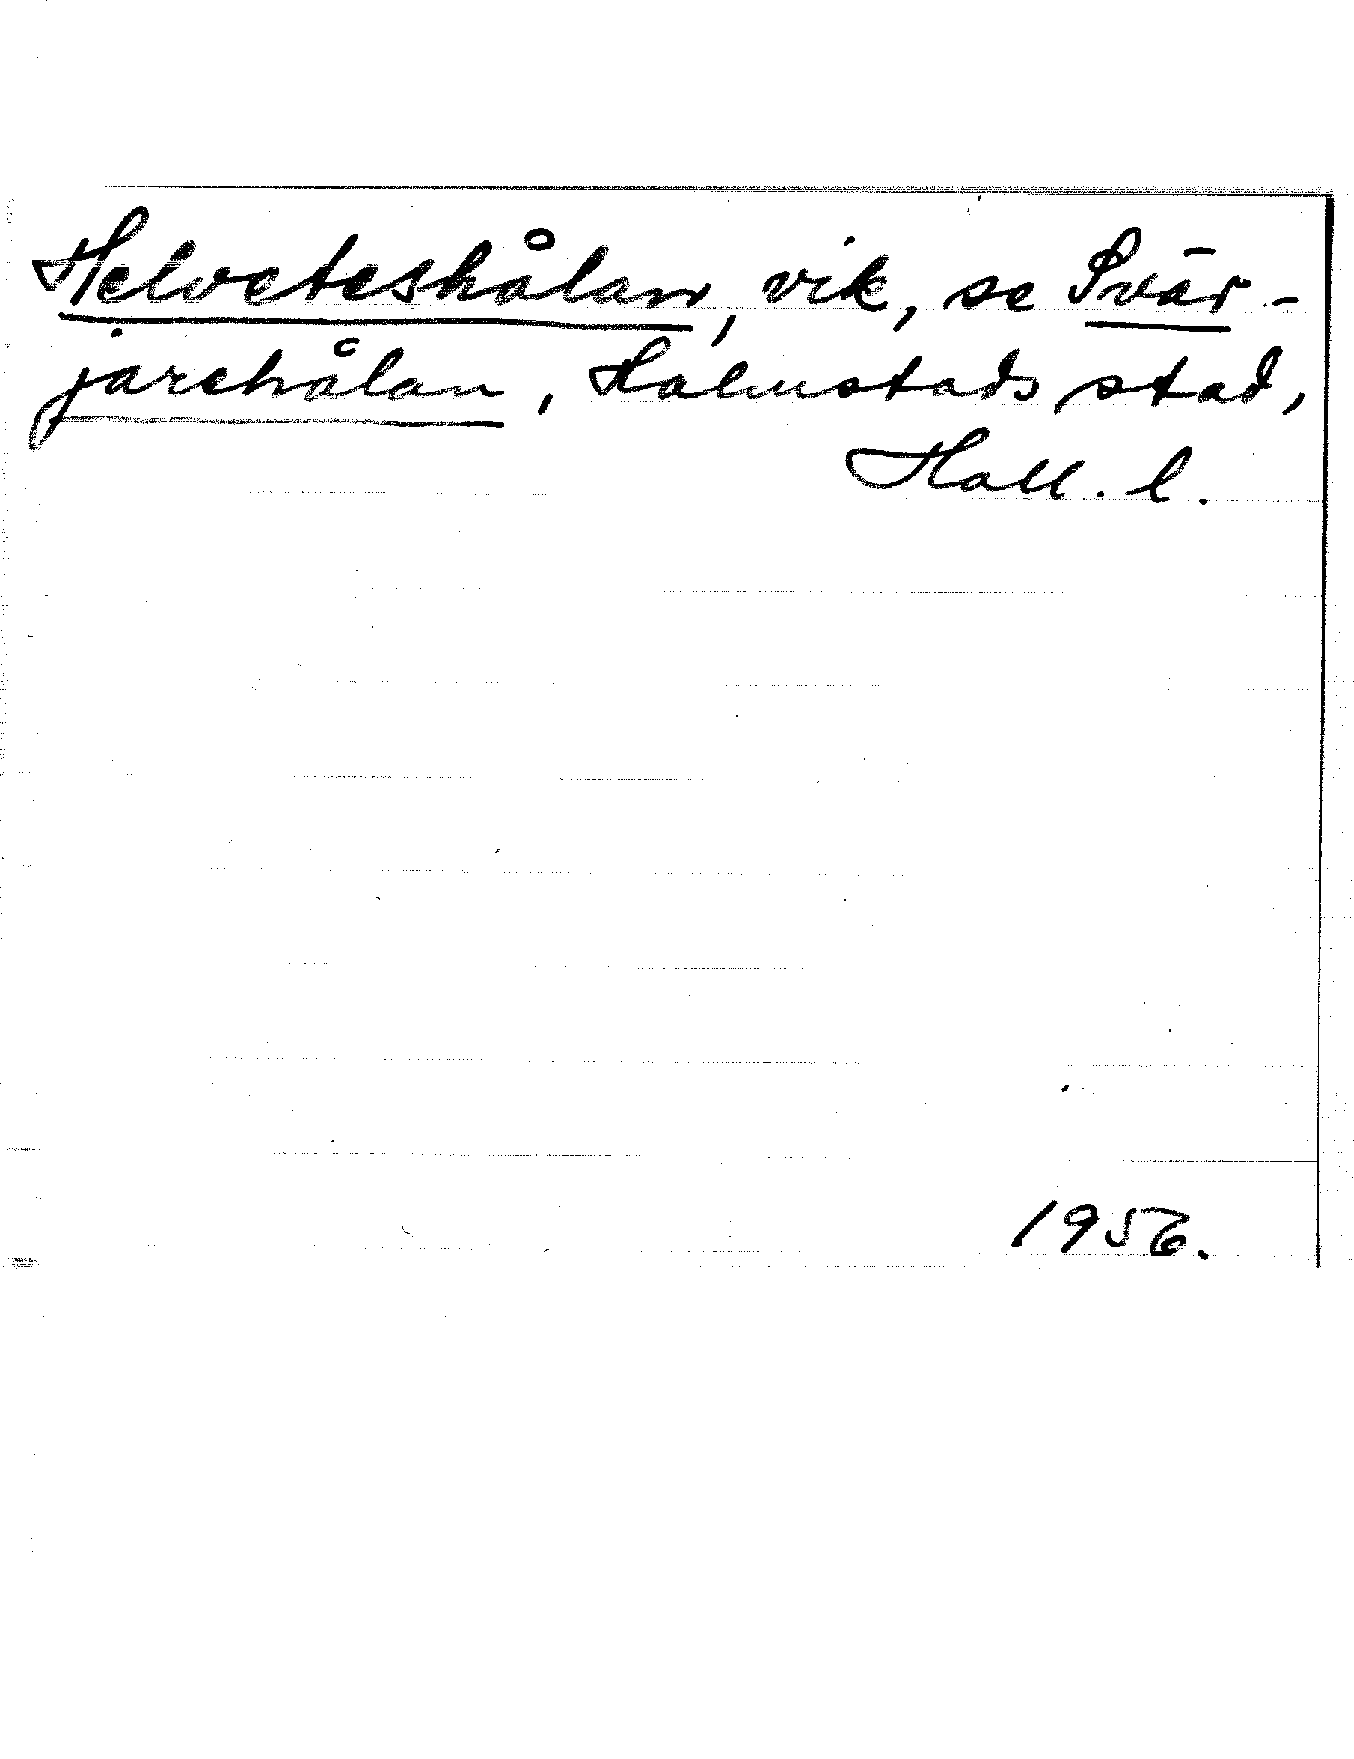 Helveteshålan, vik, se Svär-
jarehålan, Halmstads stad,
Hall. l.
1956.